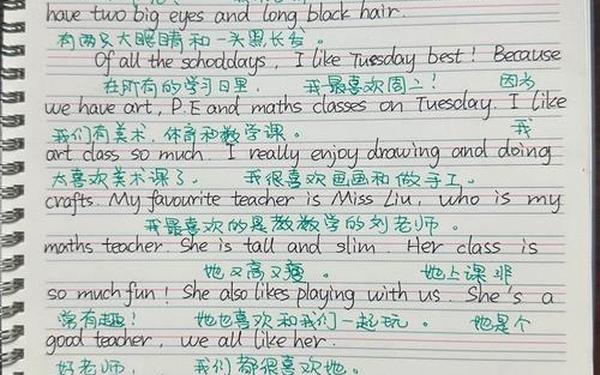 have two big eyes and long black hair.
有两只大眼睛和一头黑长发。
Of all the schooldays, I like Tuesday best! Because
在所有的学习日里, 我最喜欢周二! 因为
we have art, P.E and maths classes on Tuesday. I like
我们有美术、体育和数学课。 我
art class so much. I really enjoy drawing and doing
太喜欢美术课了。 我很喜欢画画和做手工。
crafts. My favourite teacher is Miss Liu, who is my
我最喜欢的是教数学的刘老师。
maths teacher. She is tall and slim. Her class is
她又高又瘦。 她上课非
so much fun! She also likes playing with us. She's a
常有趣! 她也喜欢和我们一起玩。 她是个
good teacher, we all like her.
好老师, 我们都很喜欢她。